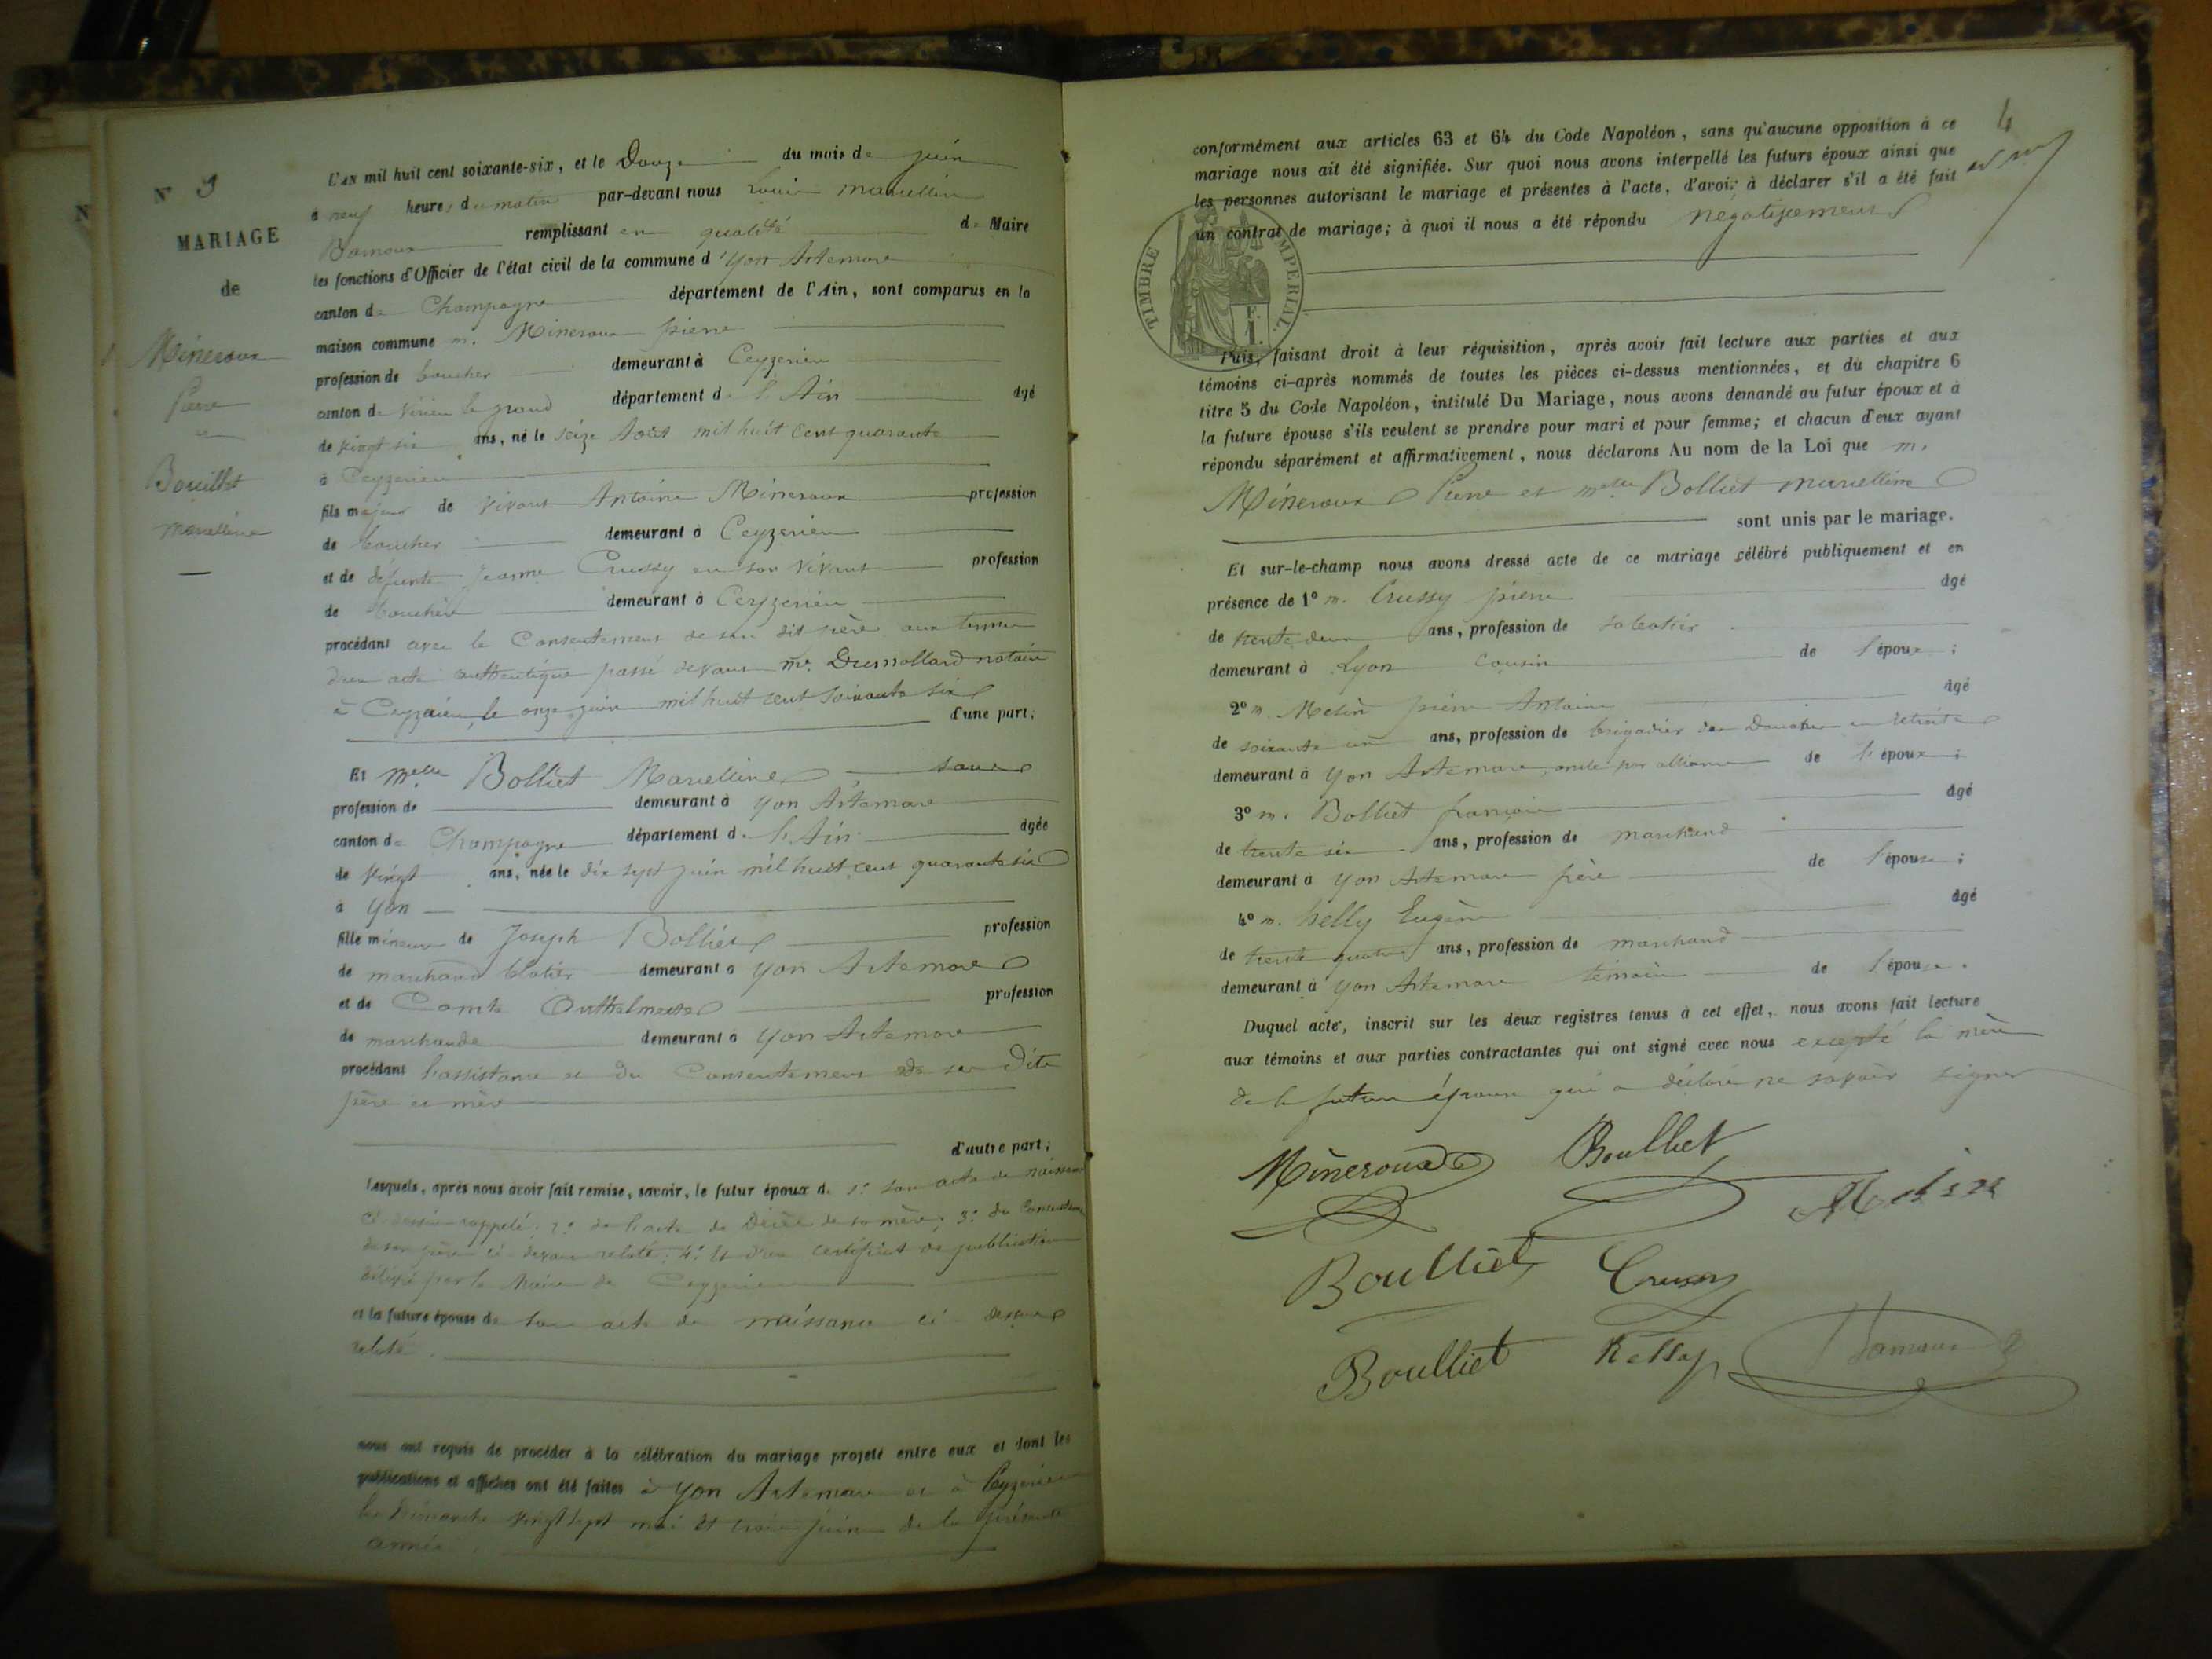 N° 3
MARIAGE
de
Mineroux
Pierre
Bouillet
Marcelline
L'AN mil huit cent soixante-six, et le Douze du mois de juin
à neuf heures du matin par-devant nous Louis Marcellin
remplissant en qualité de Maire
les fonctions d'Officier de l'état civil de la commune d'Yon Artemare
canton de Champagne département de l'Ain, sont comparus en la
maison commune m. Mineroux pierre
profession de boucher demeurant à Ceyzerieu
canton de Virieu le grand département de l'Ain âgé
de vingt six ans, né le seize Août mil huit cent quarante
à Ceyzerieu
fils majeur de vivant Antoine Mineroux profession
de boucher demeurant à Ceyzerieu
et de défunte Jeanne Crussy en son vivant profession
de Bouchère demeurant à Ceyzerieu
procédant avec le Consentement de son dit père aux termes
d'un acte authentique passé devant me. Dumollard notaire
à Ceyzerieu, le onze juin mil huit cent soixante six
d'une part;
Et melle Bolliet Marcelline sans
profession de demeurant à Yon Artemare
canton de Champagne département de l'Ain âgée
de vingt ans, née le dix sept juin mil huit cent quarante six
à Yon
fille mineure de Joseph Bolliet profession
de marchand blatier demeurant à Yon Artemare
et de Comte Anthelmette profession
de marchande demeurant à Yon Artemare
procédant l'assistance et du Consentement de ses dits
père et mère
d'autre part;
Lesquels, après nous avoir fait remise, savoir, le futur époux d. 1° son acte de naissance
ci-dessus rappelé; 2° de l'acte de Décès de sa mère; 3° du Consentement
de son père ci devant relaté; 4° Et d'un certificat de publication
délivré par le Maire de Ceyzerieu
et la future épouse de son acte de naissance ci dessus
relaté.
nous ont requis de procéder à la célébration du mariage projeté entre eux et dont les
publications et affiches ont été faites à Yon Artemare et à Ceyzerieu
les Dimanches vingt sept mai et trois juin de la présente
année.
4
conformément aux articles 63 et 64 du Code Napoléon, sans qu'aucune opposition à ce
mariage nous ait été signifiée. Sur quoi nous avons interpellé les futurs époux ainsi que
les personnes autorisant le mariage et présentes à l'acte, d'avoir à déclarer s'il a été fait
un contrat de mariage; à quoi il nous a été répondu négativement
TIMBRE IMPERIAL.
Puis, faisant droit à leur réquisition, après avoir fait lecture aux parties et aux
témoins ci-après nommés de toutes les pièces ci-dessus mentionnées, et du chapitre 6
titre 5 du Code Napoléon, intitulé Du Mariage, nous avons demandé au futur époux et à
la future épouse s'ils veulent se prendre pour mari et pour femme; et chacun d'eux ayant
répondu séparément et affirmativement, nous déclarons Au nom de la Loi que m.
Mineroux Pierre et melle Bolliet marcelline
sont unis par le mariage.
Et sur-le-champ nous avons dressé acte de ce mariage célébré publiquement et en
présence de 1° m. Crussy pierre âgé
de trente deux ans, profession de sabotier
demeurant à Lyon cousin de l'époux;
2° m. Melin pierre Antoine âgé
de soixante un ans, profession de brigadier des Douanes en retraite
demeurant à Yon Artemare, oncle par alliance de l'époux;
3° m. Bolliet françois âgé
de trente six ans, profession de marchand
demeurant à Yon Artemare frère de l'épouse;
4° m. Kelly Eugène âgé
de trente quatre ans, profession de marchand
demeurant à Yon Artemare témoin de l'épouse.
Duquel acte, inscrit sur les deux registres tenus à cet effet, nous avons fait lecture
aux témoins et aux parties contractantes qui ont signé avec nous excepté la mère
de la future épouse qui a déclaré ne savoir signer
Mineroux Boulliet
Boulliet Crussy
Boulliet